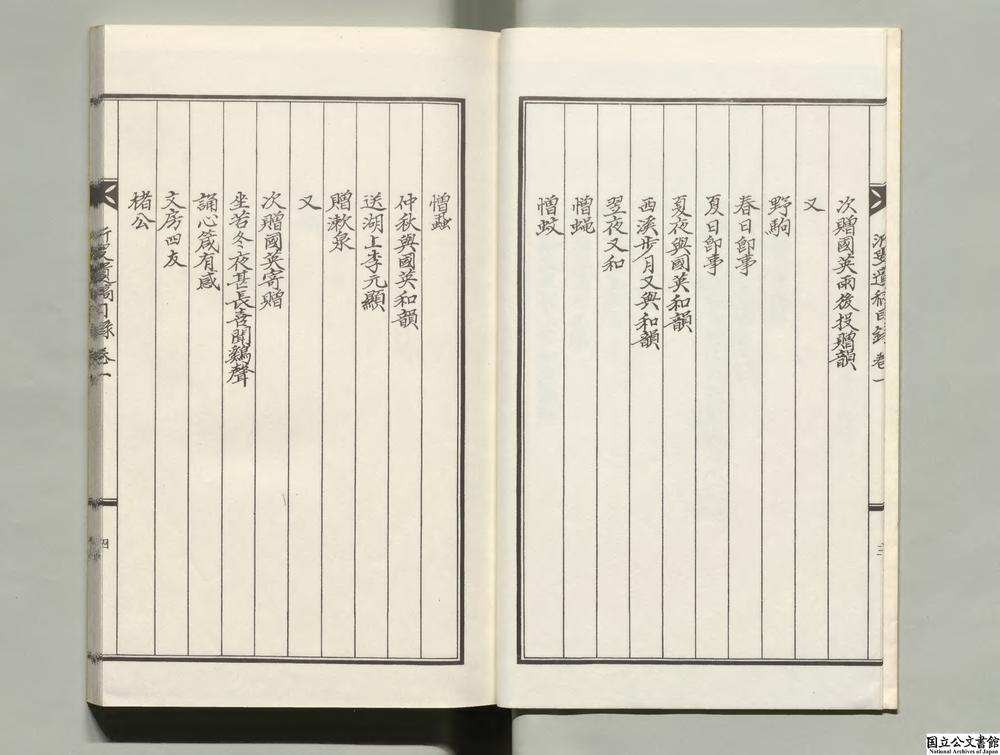 次贈國英兩後投贈韻
又
野駒
春日卽事
夏日卽事
夏夜與國英和韻
西溪步月又與和韻
翌夜又和
憎蝇
憎蚊
憎蝨
仲秋與國英和韻
送湖上李元顯
贈漱泉
又
次贈國英寄贈
坐若冬夜甚長喜聞鷄聲
誦心箴有感
文房四友
楮公
遺稿目錄 卷一
三
遺稿目錄 卷一
四
国立公文書館
National Archives of Japan